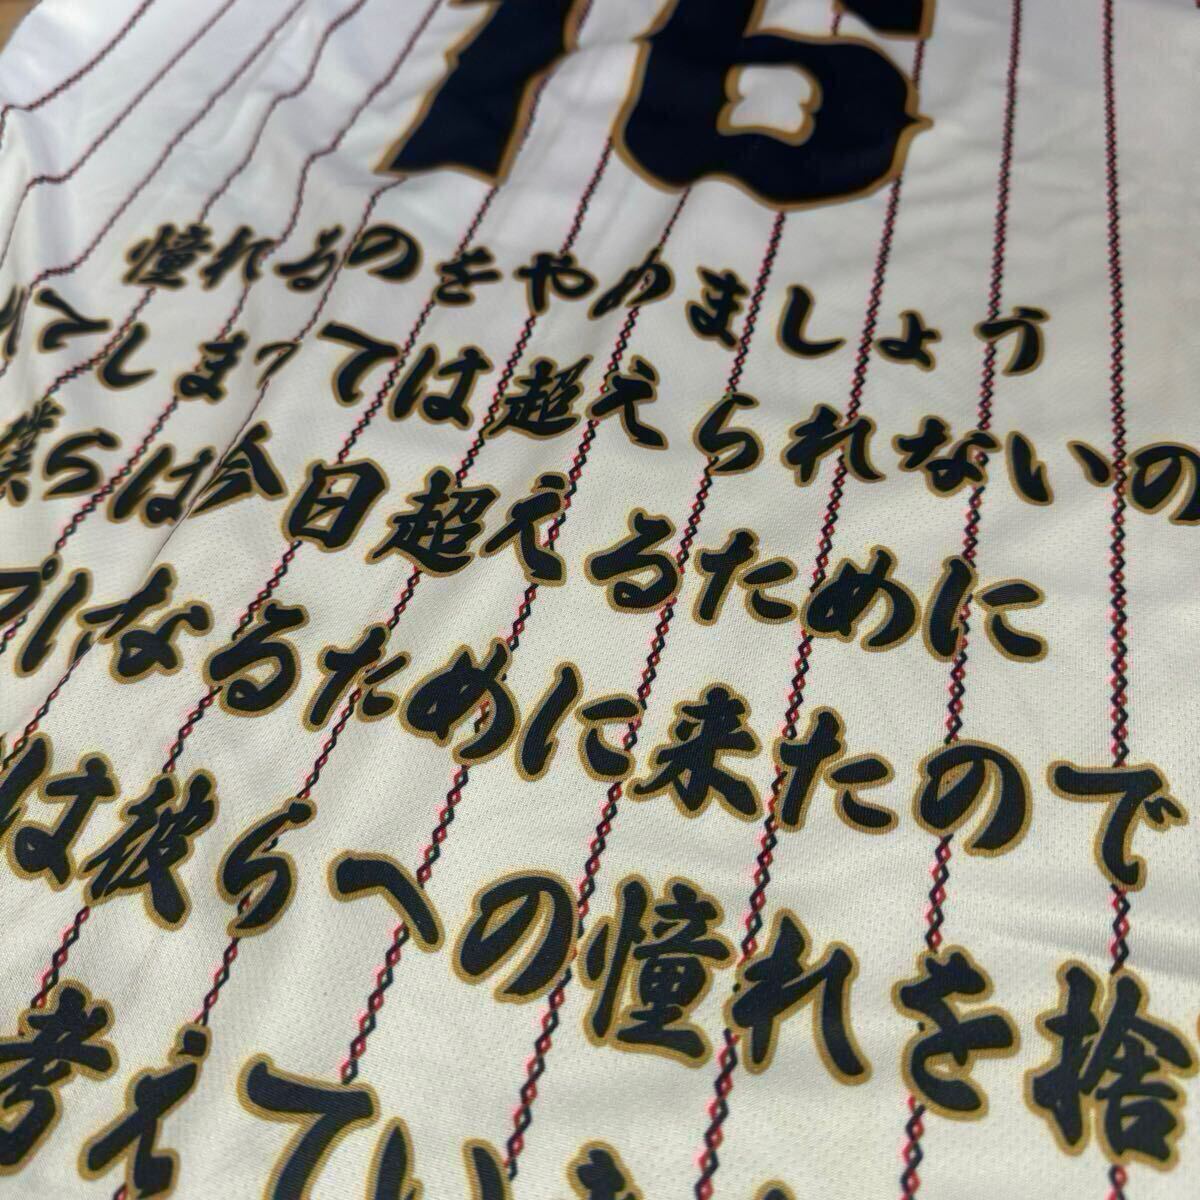 16
憧れるのをやめましょう
れてしまっては超えられないの
僕らは今日超えるために
プになるために来たので
は彼らへの憧れを捨
考えてい